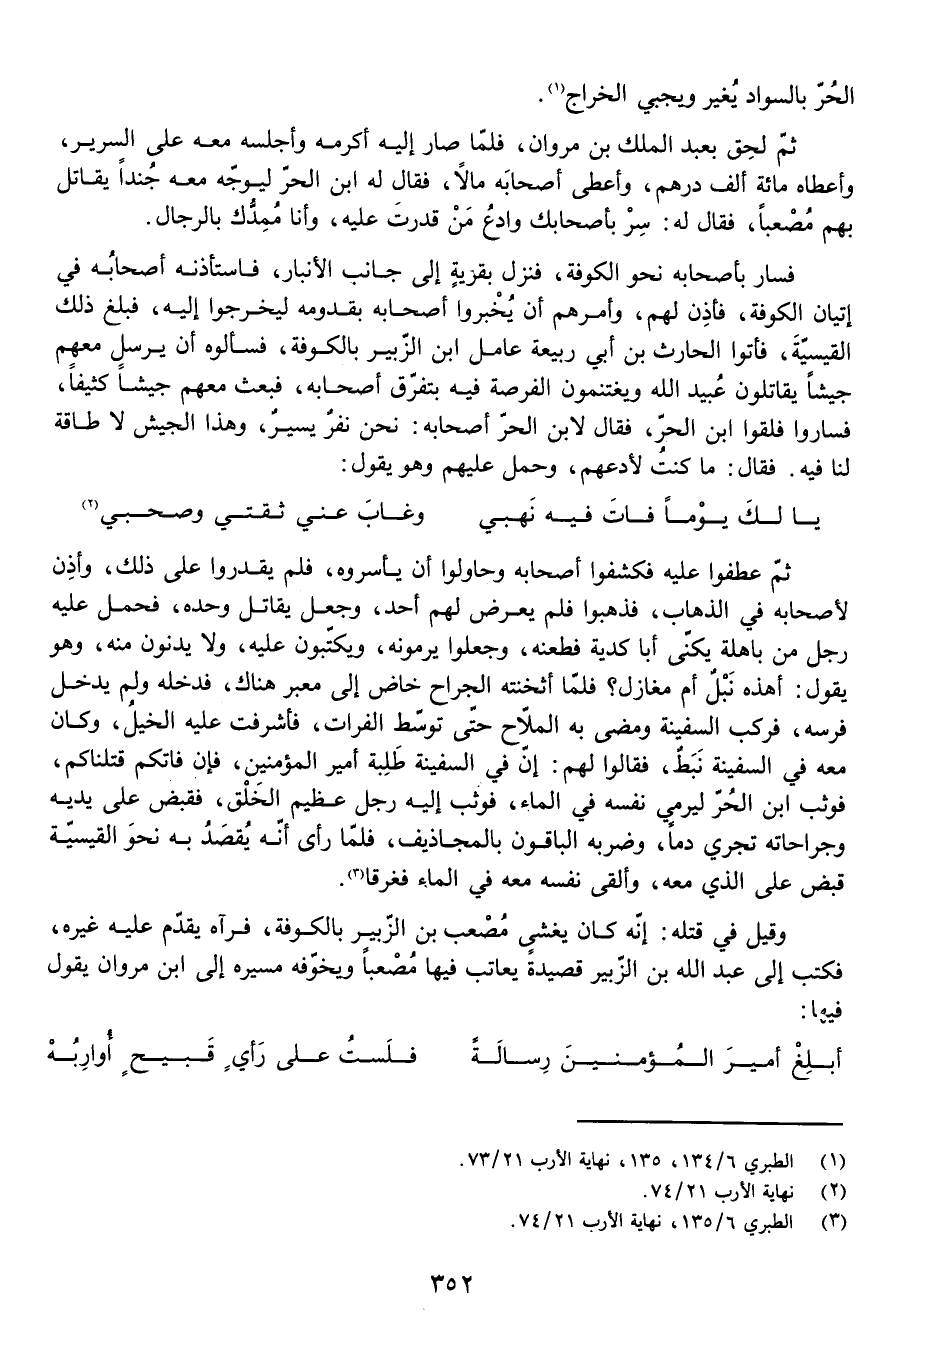 الحُرّ بالسواد يُغير ويجبي الخراج(١).
ثمّ لحِق بعبد الملك بن مروان، فلمّا صار إليه أكرمه وأجلسه معه على السرير،
وأعطاه مائة ألف درهم، وأعطى أصحابَه مالاً، فقال له ابن الحرّ ليوجّه معه جُنداً يقاتل
بهم مُصْعباً، فقال له: سِرْ بأصحابك وادعُ مَنْ قدرتَ عليه، وأنا مُمِدُّك بالرجال.
فسار بأصحابه نحو الكوفة، فنزل بقريةٍ إلى جانب الأنبار، فاستأذنه أصحابُه في
إتيان الكوفة، فأذِن لهم، وأمرهم أن يُخْبروا أصحابه بقدومه ليخرجوا إليه، فبلغ ذلك
القيسيّةَ، فأتوا الحارث بن أبي ربيعة عامل ابن الزّبير بالكوفة، فسألوه أن يرسل معهم
جيشاً يقاتلون عُبيد الله ويغتنمون الفرصة فيه بتفرّق أصحابه، فبعث معهم جيشاً كثيفاً،
فساروا فلقوا ابن الحرّ، فقال لابن الحرّ أصحابه: نحن نفرٌ يسيرٌ، وهذا الجيش لا طاقة
لنا فيه. فقال: ما كنتُ لأدعهم، وحمل عليهم وهو يقول:
يا لك يوْماً فاتَ فيه نَهبي وغابَ عني ثقتي وصحبي(٢)
ثمّ عطفوا عليه فكشفوا أصحابه وحاولوا أن يأسروه، فلم يقدروا على ذلك، وأذِن
لأصحابه في الذهاب، فذهبوا فلم يعرض لهم أحد، وجعل يقاتل وحده، فحمل عليه
رجل من باهلة يكنّى أبا كدية فطعنه، وجعلوا يرمونه، ويكتّبون عليه، ولا يدنون منه، وهو
يقول: أهذه نَبْلٌ أم مغازل؟ فلمّا أثخنته الجراح خاض إلى معبر هناك، فدخله ولم يدخل
فرسه، فركب السفينة ومضى به الملّاح حتّى توسّط الفرات، فأشرفت عليه الخيلُ، وكان
معه في السفينة نَبَطٌ، فقالوا لهم: إنّ في السفينة طَلِبة أمير المؤمنين، فإن فاتكم قتلناكم،
فوثب ابن الحُرّ ليرمي نفسه في الماء، فوثب إليه رجل عظيم الخَلْق، فقبض على يديه
وجراحاته تجري دماً، وضربه الباقون بالمجاذيف، فلمّا رأى أنّه يُقصَدُ به نحوَ القيسيّة
قبض على الذي معه، وألقى نفسه معه في الماء فغرقا(٣).
وقيل في قتله: إنّه كان يغشى مُصْعب بن الزّبير بالكوفة، فرآه يقدّم عليه غيره،
فكتب إلى عبد الله بن الزّبير قصيدةً يعاتب فيها مُصْعباً ويخوّفه مسيره إلى ابن مروان يقول
فيها:
أبلِغْ أميرَ المُؤمنينَ رِسالَةً فلَستُ على رَأيٍ قَبيحٍ أُوارِبُهْ
(١) الطبري ١٣٤/٦، ١٣٥، نهاية الأرب ٧٣/٢١.
(٢) نهاية الأرب ٧٤/٢١.
(٣) الطبري ١٣٥/٦، نهاية الأرب ٧٤/٢١.
٣٥٢